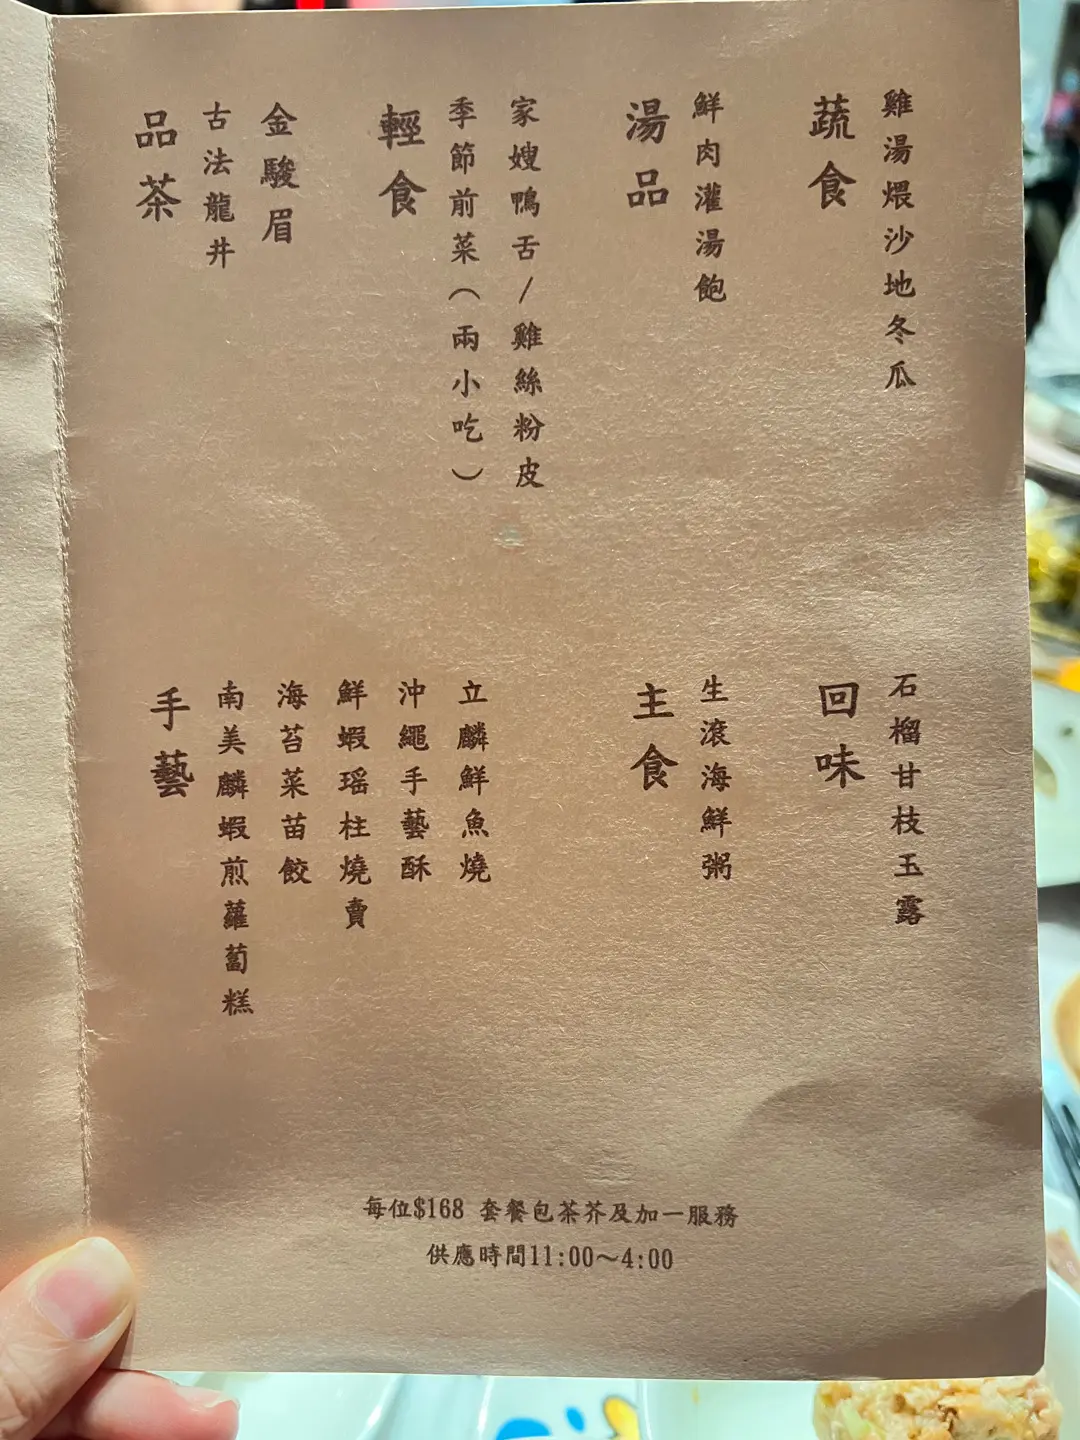 品茶
古法龍井
金駿眉
輕食
季節前菜（兩小吃）
家嫂鴨舌/雞絲粉皮
湯品
鮮肉灌湯飽
蔬食
雞湯煨沙地冬瓜
手藝
南美麟蝦煎蘿蔔糕
海苔菜苗餃
鮮蝦瑶柱燒賣
沖繩手藝酥
立麟鮮魚燒
主食
生滾海鮮粥
回味
石榴甘枝玉露
每位$168 套餐包茶芥及加一服務
供應時間11:00～4:00